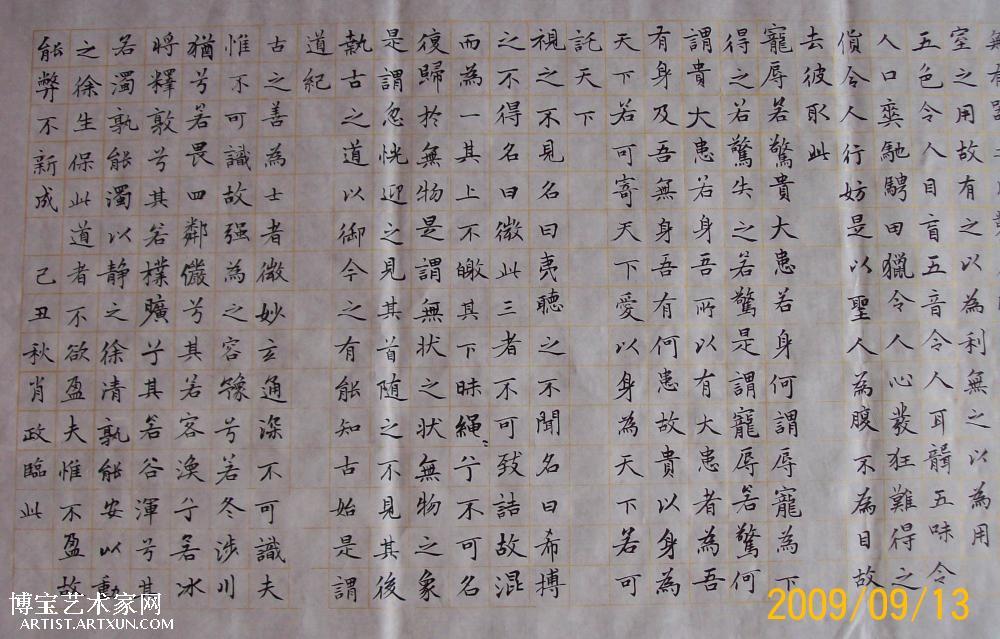 室之用故有之以為利無之以為用
五色令人目盲五音令人耳聾五味令
人口爽馳騁田獵令人心發狂難得之
貨令人行妨是以聖人為腹不為目故
去彼取此
寵辱若驚貴大患若身何謂辱寵為下
得之若驚失之若驚是謂寵辱若驚何
謂貴大患若身吾所以有大患者為吾
有身及吾無身吾有何患故貴以身為
天下若可寄天下愛以身為天下若可
託天下
視之不見名曰夷聽之不聞名曰希搏
之不得名曰微此三者不可致詰故混
而為一其上不皦其下昧繩〻兮不可名
復歸於無物是謂無状之状無物之象
是謂忽恍迎之見其首随之不見其後
執古之道以御今之有能知古始是謂
道紀
古之善為士者微妙玄通深不可識夫
惟不可識故强為之容豫兮若冬涉川
猶兮若畏四鄰儼兮其若客渙兮若冰
將釋敦兮其若樸曠兮其若谷渾兮其
名濁孰能濁以静之徐清孰能安以動
之徐生保此道者不欲盈夫惟不盈故
能弊不新成 己丑秋肖政臨此
博宝艺术家网
ARTIST.ARTXUN.COM
2009/09/13